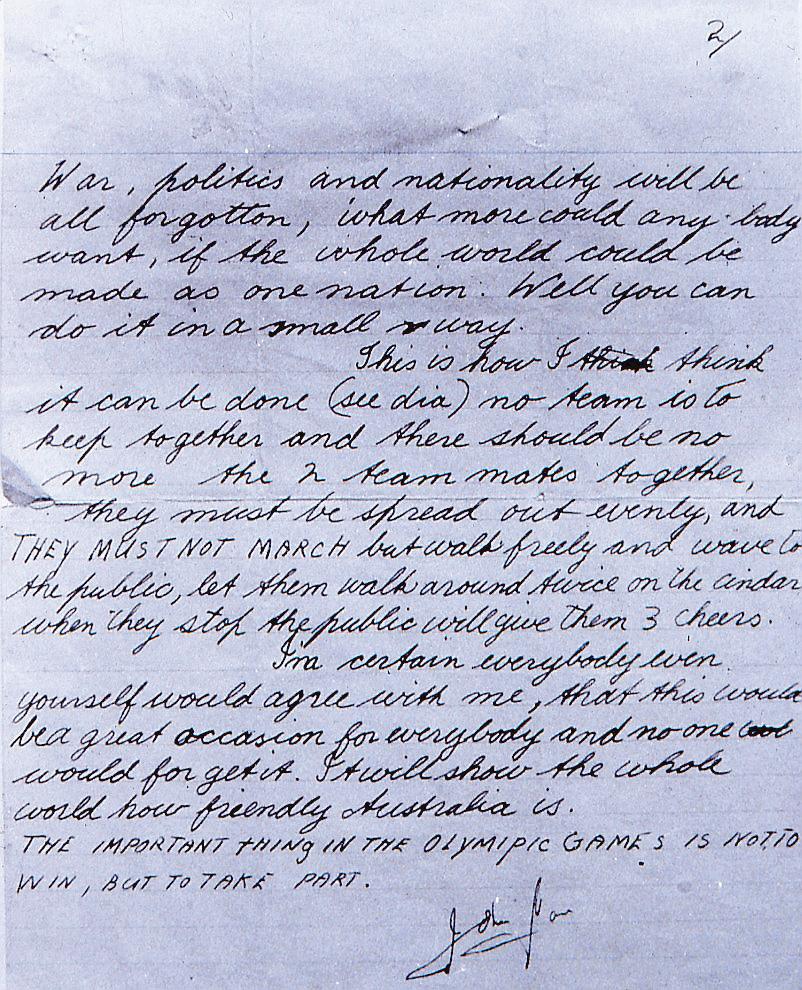 2/
War, politics and nationality will be
all forgotton, what more could any body
want, if the whole world could be
made as one nation. Well you can
do it in a small way.
This is how I think think
it can be done (see dia) no team is to
keep together and there should be no
more the 2 team mates together,
they must be spread out evenly, and
THEY MUST NOT MARCH but walk freely and wave to
the public, let them walk around twice on the cindar
when they stop the public will give them 3 cheers.
I'm certain everybody even
yourself would agree with me, that this would
be a great occasion for everybody and no one
would forget it. It will show the whole
world how friendly Australia is.
THE IMPORTANT THING IN THE OLYMIPIC GAMES IS NOT TO
WIN, BUT TO TAKE PART.
John